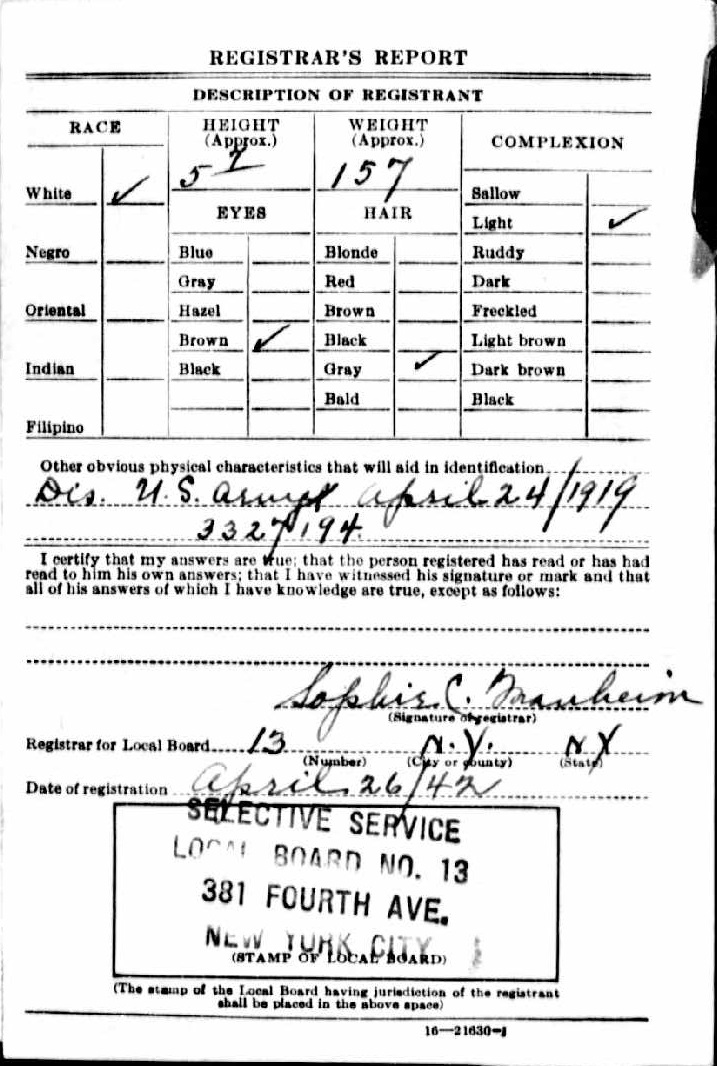 REGISTRAR'S REPORT
DESCRIPTION OF REGISTRANT
RACE
HEIGHT
(Approx.)
WEIGHT
(Approx.)
COMPLEXION
5 7
157
White ✓
EYES
HAIR
Sallow
Light ✓
Negro
Blue
Blonde
Ruddy
Gray
Red
Dark
Oriental
Hazel
Brown
Freckled
Brown ✓
Black
Light brown
Indian
Black
Gray ✓
Dark brown
Bald
Black
Filipino
Other obvious physical characteristics that will aid in identification
Dis. U.S. Army April 24/1919
3327194
I certify that my answers are true; that the person registered has read or has had
read to him his own answers; that I have witnessed his signature or mark and that
all of his answers of which I have knowledge are true, except as follows:
Sophie C. Manheim
(Signature of registrar)
Registrar for Local Board 13 N.Y. NY
(Number) (City or county) (State)
Date of registration April 26/42
SELECTIVE SERVICE
LOCAL BOARD NO. 13
381 FOURTH AVE.
NEW YORK CITY
(STAMP OF LOCAL BOARD)
(The stamp of the Local Board having jurisdiction of the registrant
shall be placed in the above space)
16—21630-1